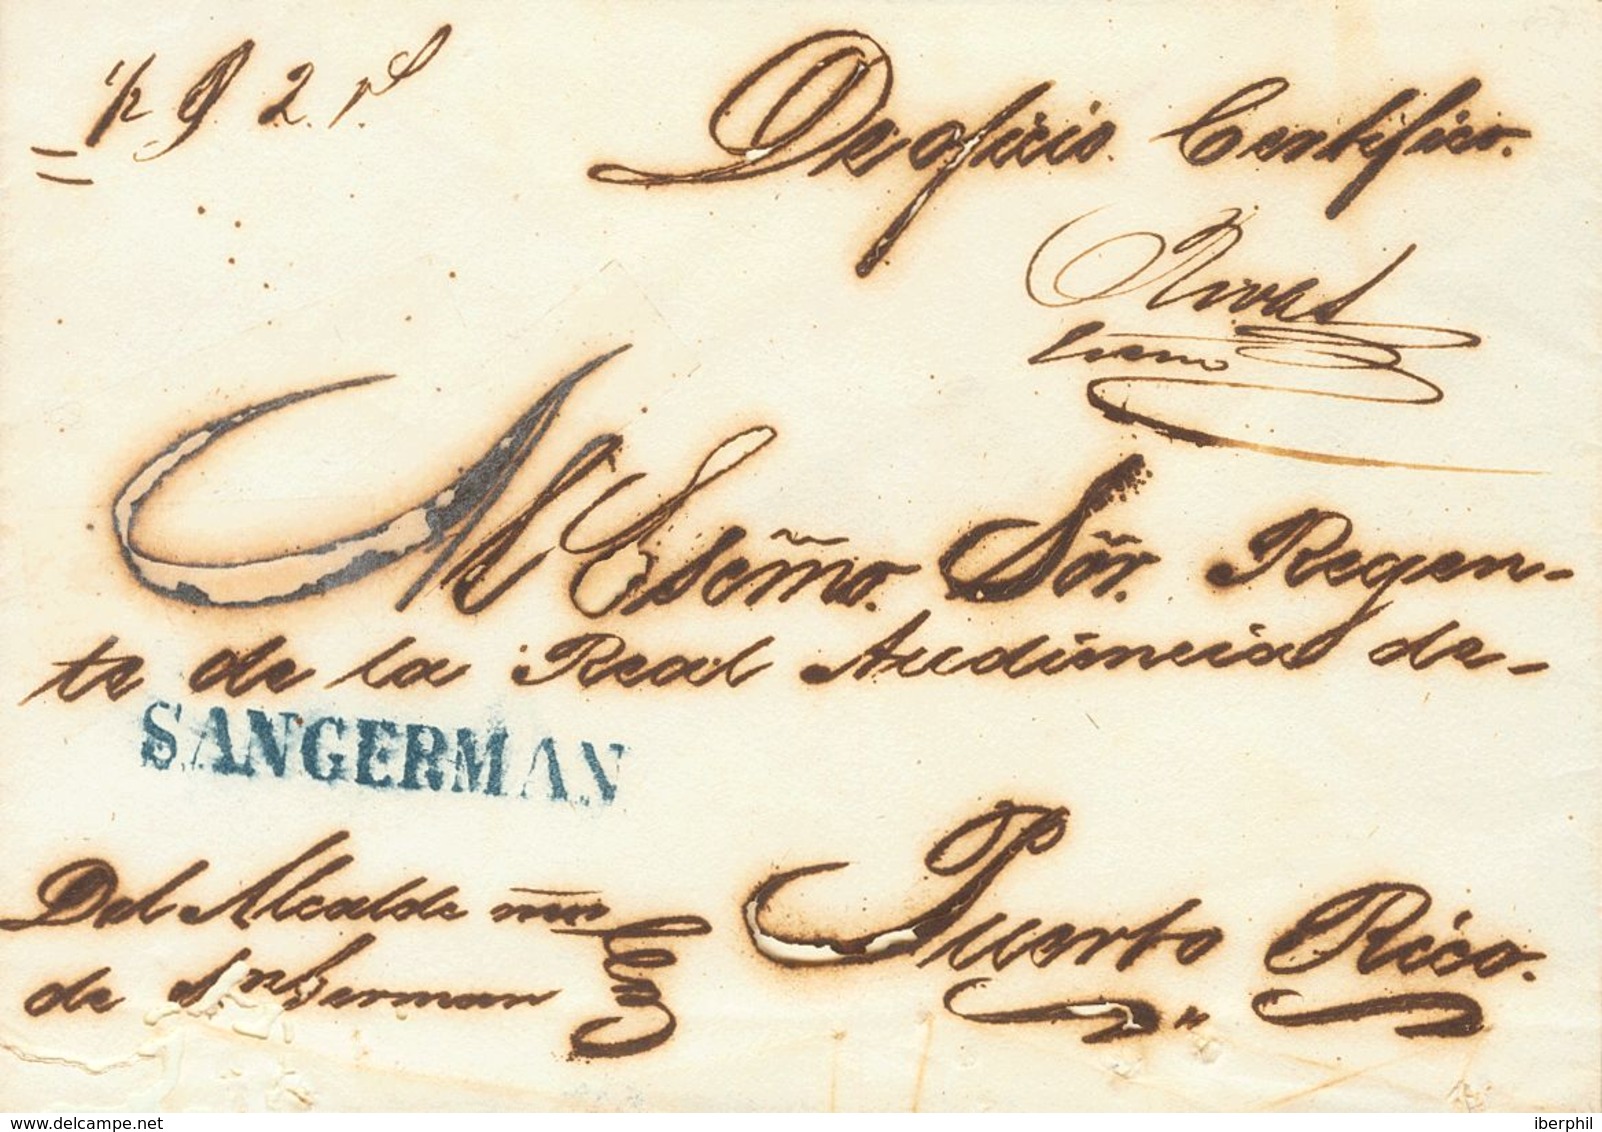 De oficio Certifico.
Rivas
Al Esermõ. Sõr. Regen-
te de la Real Audiencia de-
SANGERMAN
Del Alcalde
de Sn. German
Puerto Rico.
delcampe.net
iberphil